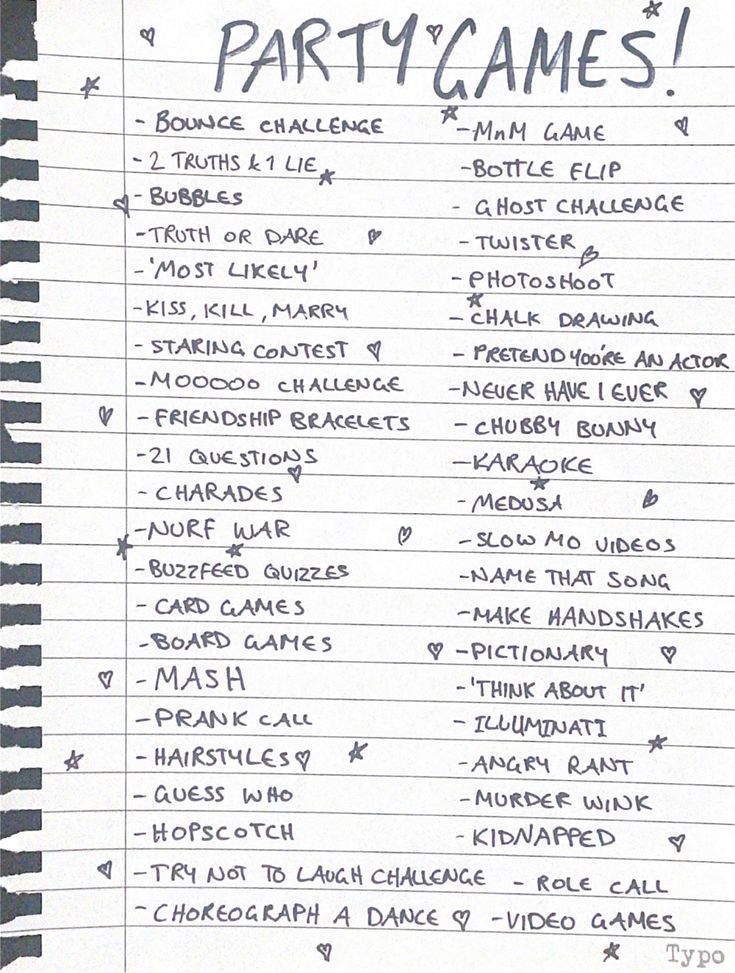 PARTY GAMES!
- BOUNCE CHALLENGE
- 2 TRUTHS & 1 LIE
- BUBBLES
- TRUTH OR DARE
- 'MOST LIKELY'
- KISS, KILL, MARRY
- STARING CONTEST
- MOOOOO CHALLENGE
- FRIENDSHIP BRACELETS
- 21 QUESTIONS
- CHARADES
- NURF WAR
- BUZZFEED QUIZZES
- CARD GAMES
- BOARD GAMES
- MASH
- PRANK CALL
- HAIRSTYLES
- GUESS WHO
- HOPSCOTCH
- TRY NOT TO LAUGH CHALLENGE
- CHOREOGRAPH A DANCE
- MnM GAME
- BOTTLE FLIP
- GHOST CHALLENGE
- TWISTER
- PHOTOSHOOT
- CHALK DRAWING
- PRETEND YOU'RE AN ACTOR
- NEVER HAVE I EVER
- CHUBBY BUNNY
- KARAOKE
- MEDUSA
- SLOW MO VIDEOS
- NAME THAT SONG
- MAKE HANDSHAKES
- PICTIONARY
- 'THINK ABOUT IT'
- ILLUMINATI
- ANGRY RANT
- MURDER WINK
- KIDNAPPED
- ROLE CALL
- VIDEO GAMES
Typo